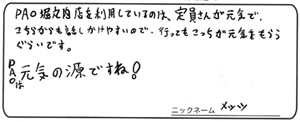 PAO堀之内店を利用しているのは、定員さんが元気で、
こちらからも話しかけやすいので、行ってもこっちが元気をもらう
ぐらいです。
PAOは元気の源ですね!
ニックネーム メッツ